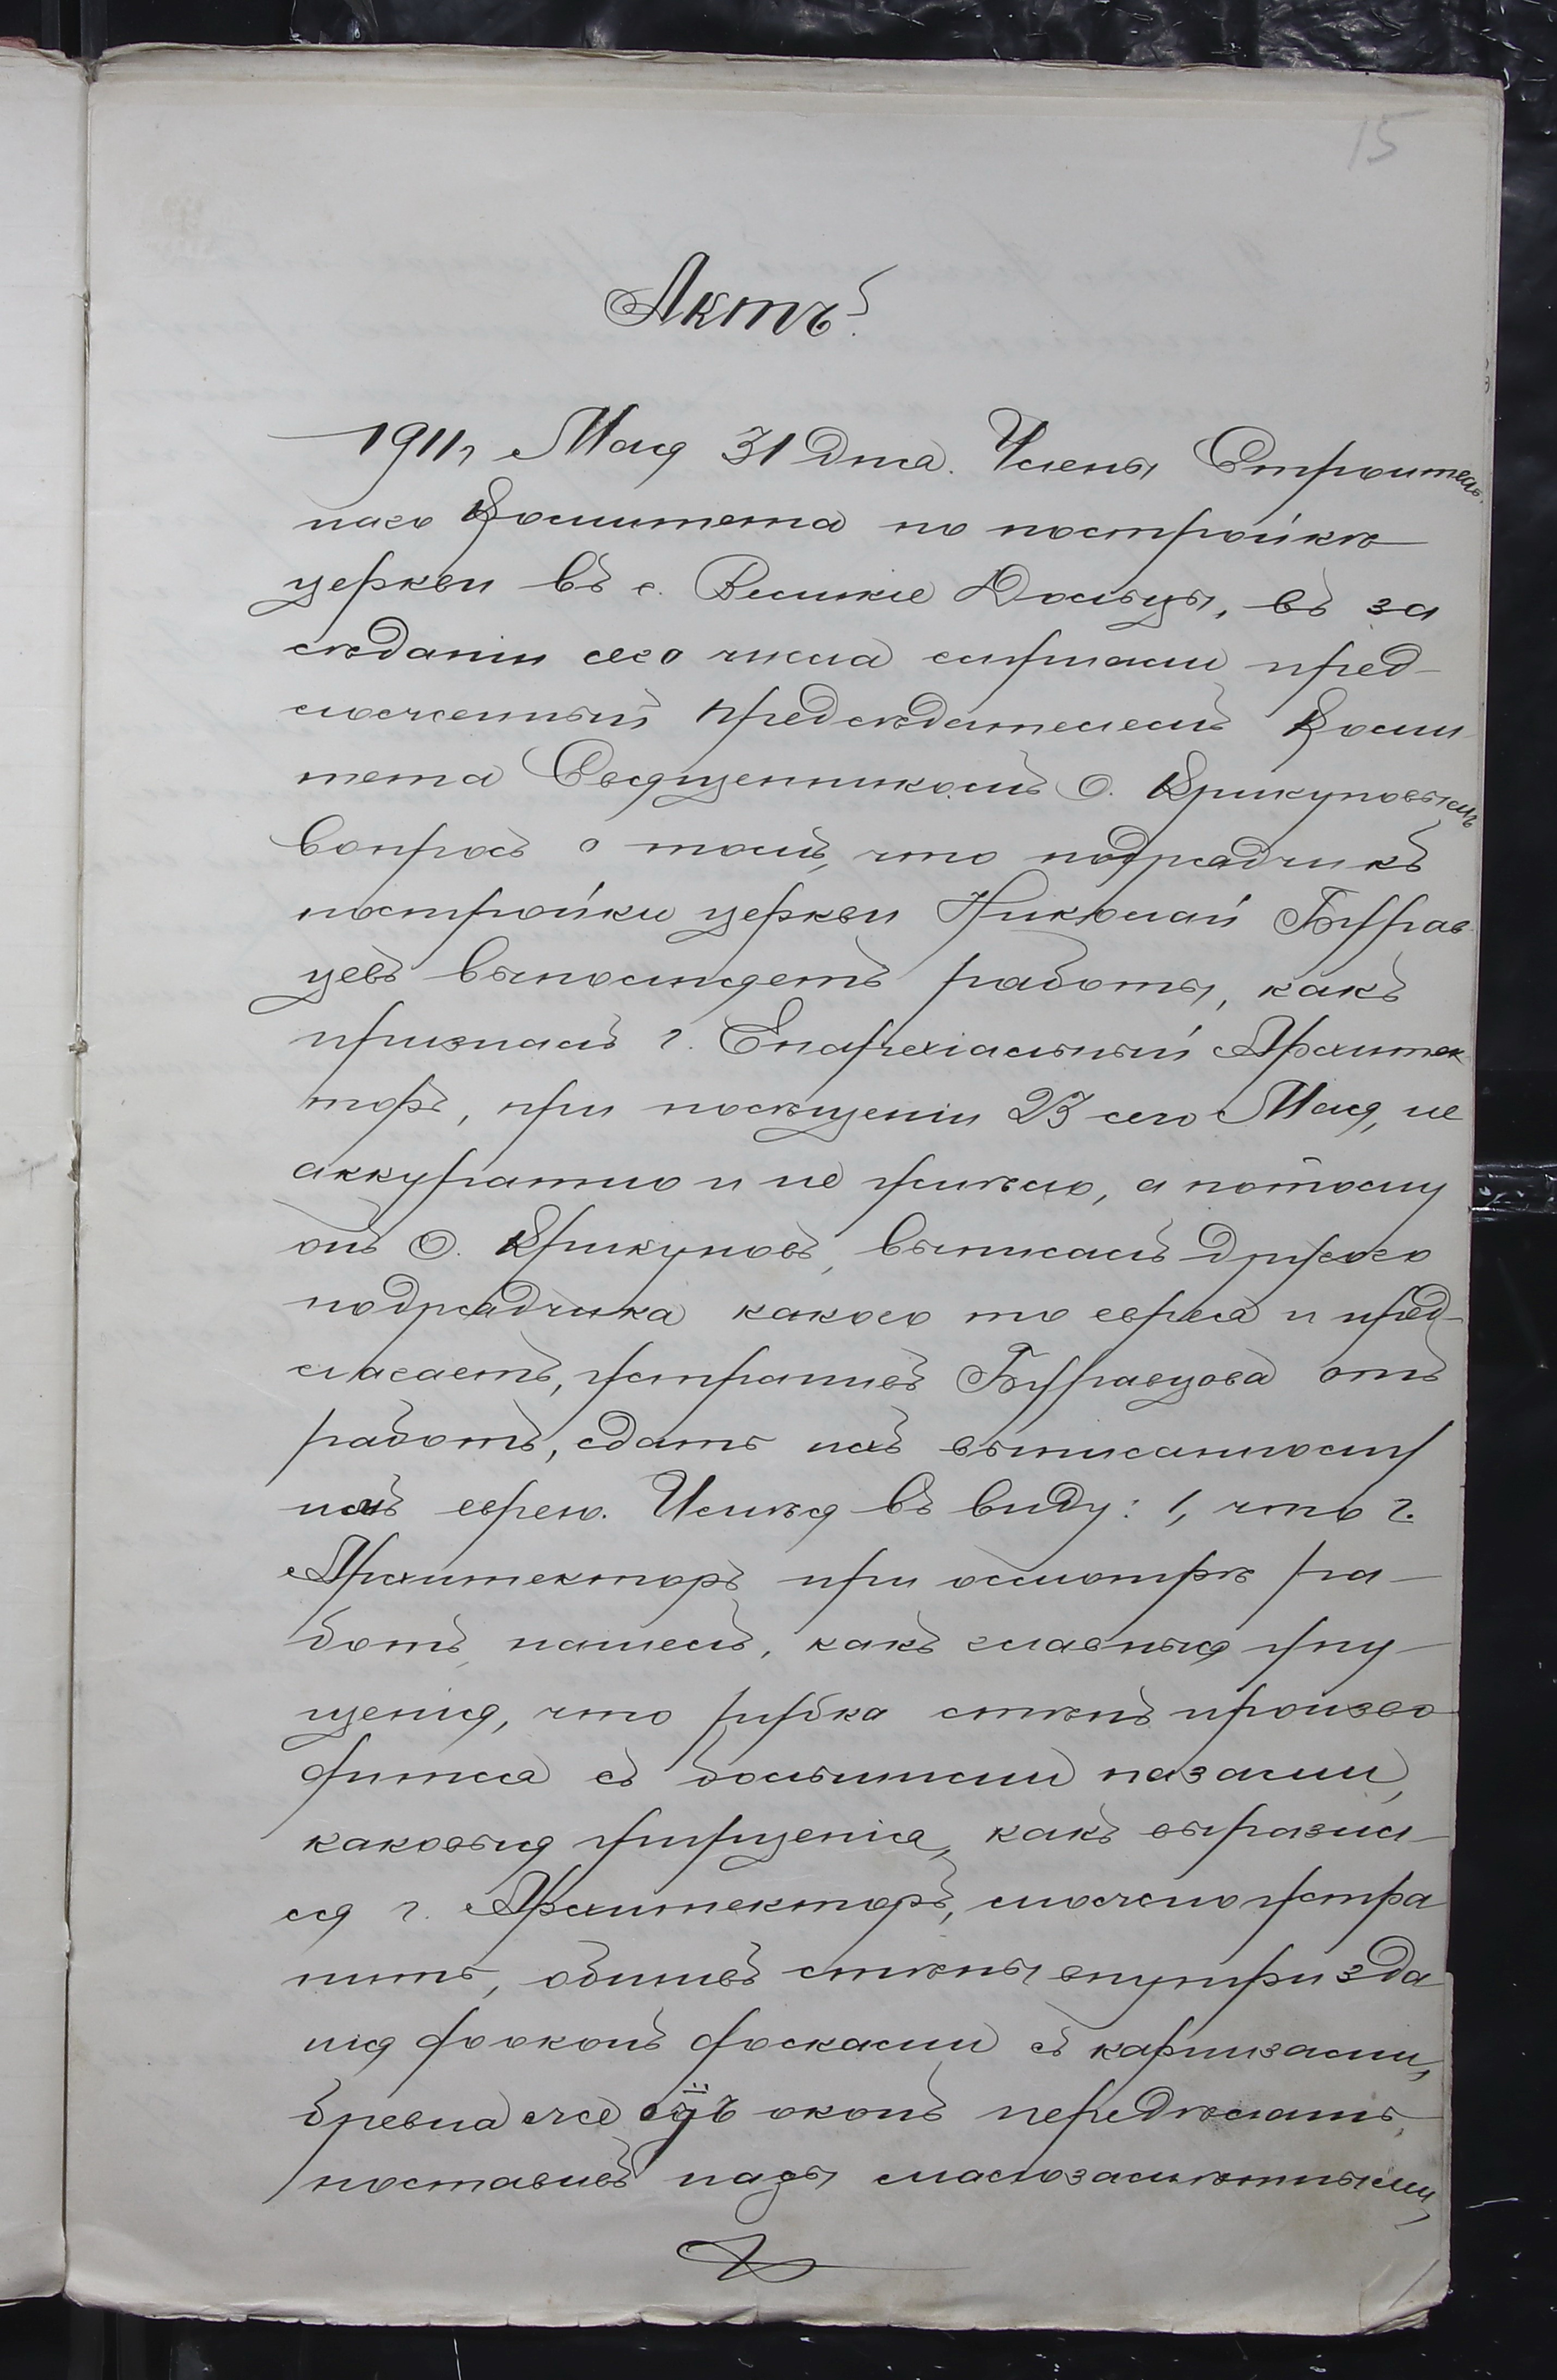 15
Актъ.
1911, Мая 31 дня. Члены Строитель-
наго Комитета по постройкѣ
церкви въ с. Великіе Дольцы, въ за
сѣданіи сего числа слушали пред-
ложенный предсѣдателемъ Коми
тета Священникомъ О. Крикуновымъ
вопросъ о томъ, что подрядчикъ
постройки церкви Николай Бурав
цевъ выполняетъ работы, какъ
призналъ г. Епархіальный Архитек
торъ, при посѣщеніи 23 сего Мая, не
аккуратно и не умѣло, а потому
онъ О. Крикуновъ, выписалъ другого
подрядчика какого то еврея и пред-
лагаетъ, устранивъ Буравцова отъ
работъ, сдать ихъ выписанному
имъ еврею. Имѣя въ виду: 1, что г.
Архитекторъ при осмотрѣ ра-
ботъ нашелъ, какъ главныя упу-
щенія, что рубка стѣнъ произво
дится съ большими пазами,
каковыя упущенія, какъ выразил-
ся г. Архитекторъ, можно устра
нить, обшивъ стѣны внутри зда
нія до оконъ досками съ карнизами,
бревна же оконъ передѣлать,
поставивъ пазы малозамѣтными,